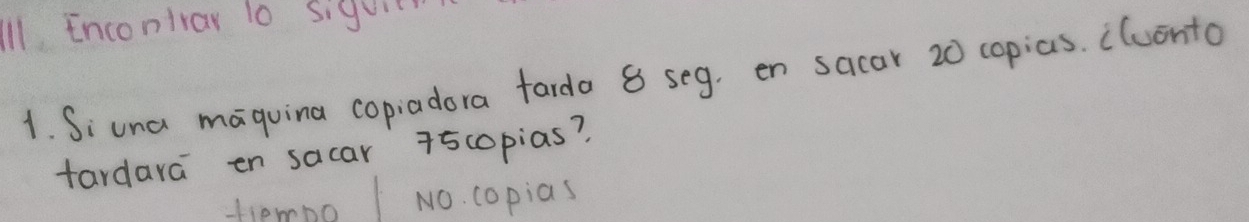 III. Encontrar lo
1. Si una máquina copiadora tarda 8 seg. en sacar 20 copias. ¿Cuánto
tardará en sacar 75 copias?.
tiempo | NO. copias